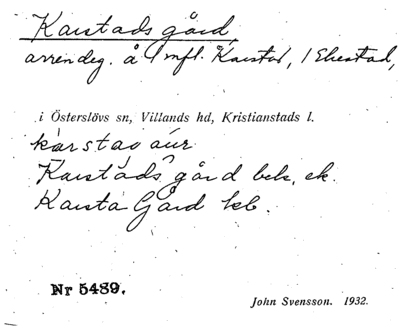 Karstads gård
arrendeg. å 1 mfl. Karstad, 1 Ekestad,
i Österslövs sn, Villands hd, Kristianstads l.
Karstads gård bek. ek.
Karsta Gård kb.
Nr 5489.
John Svensson. 1932.